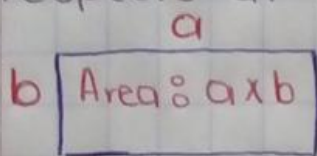 a
b
Area: a x b